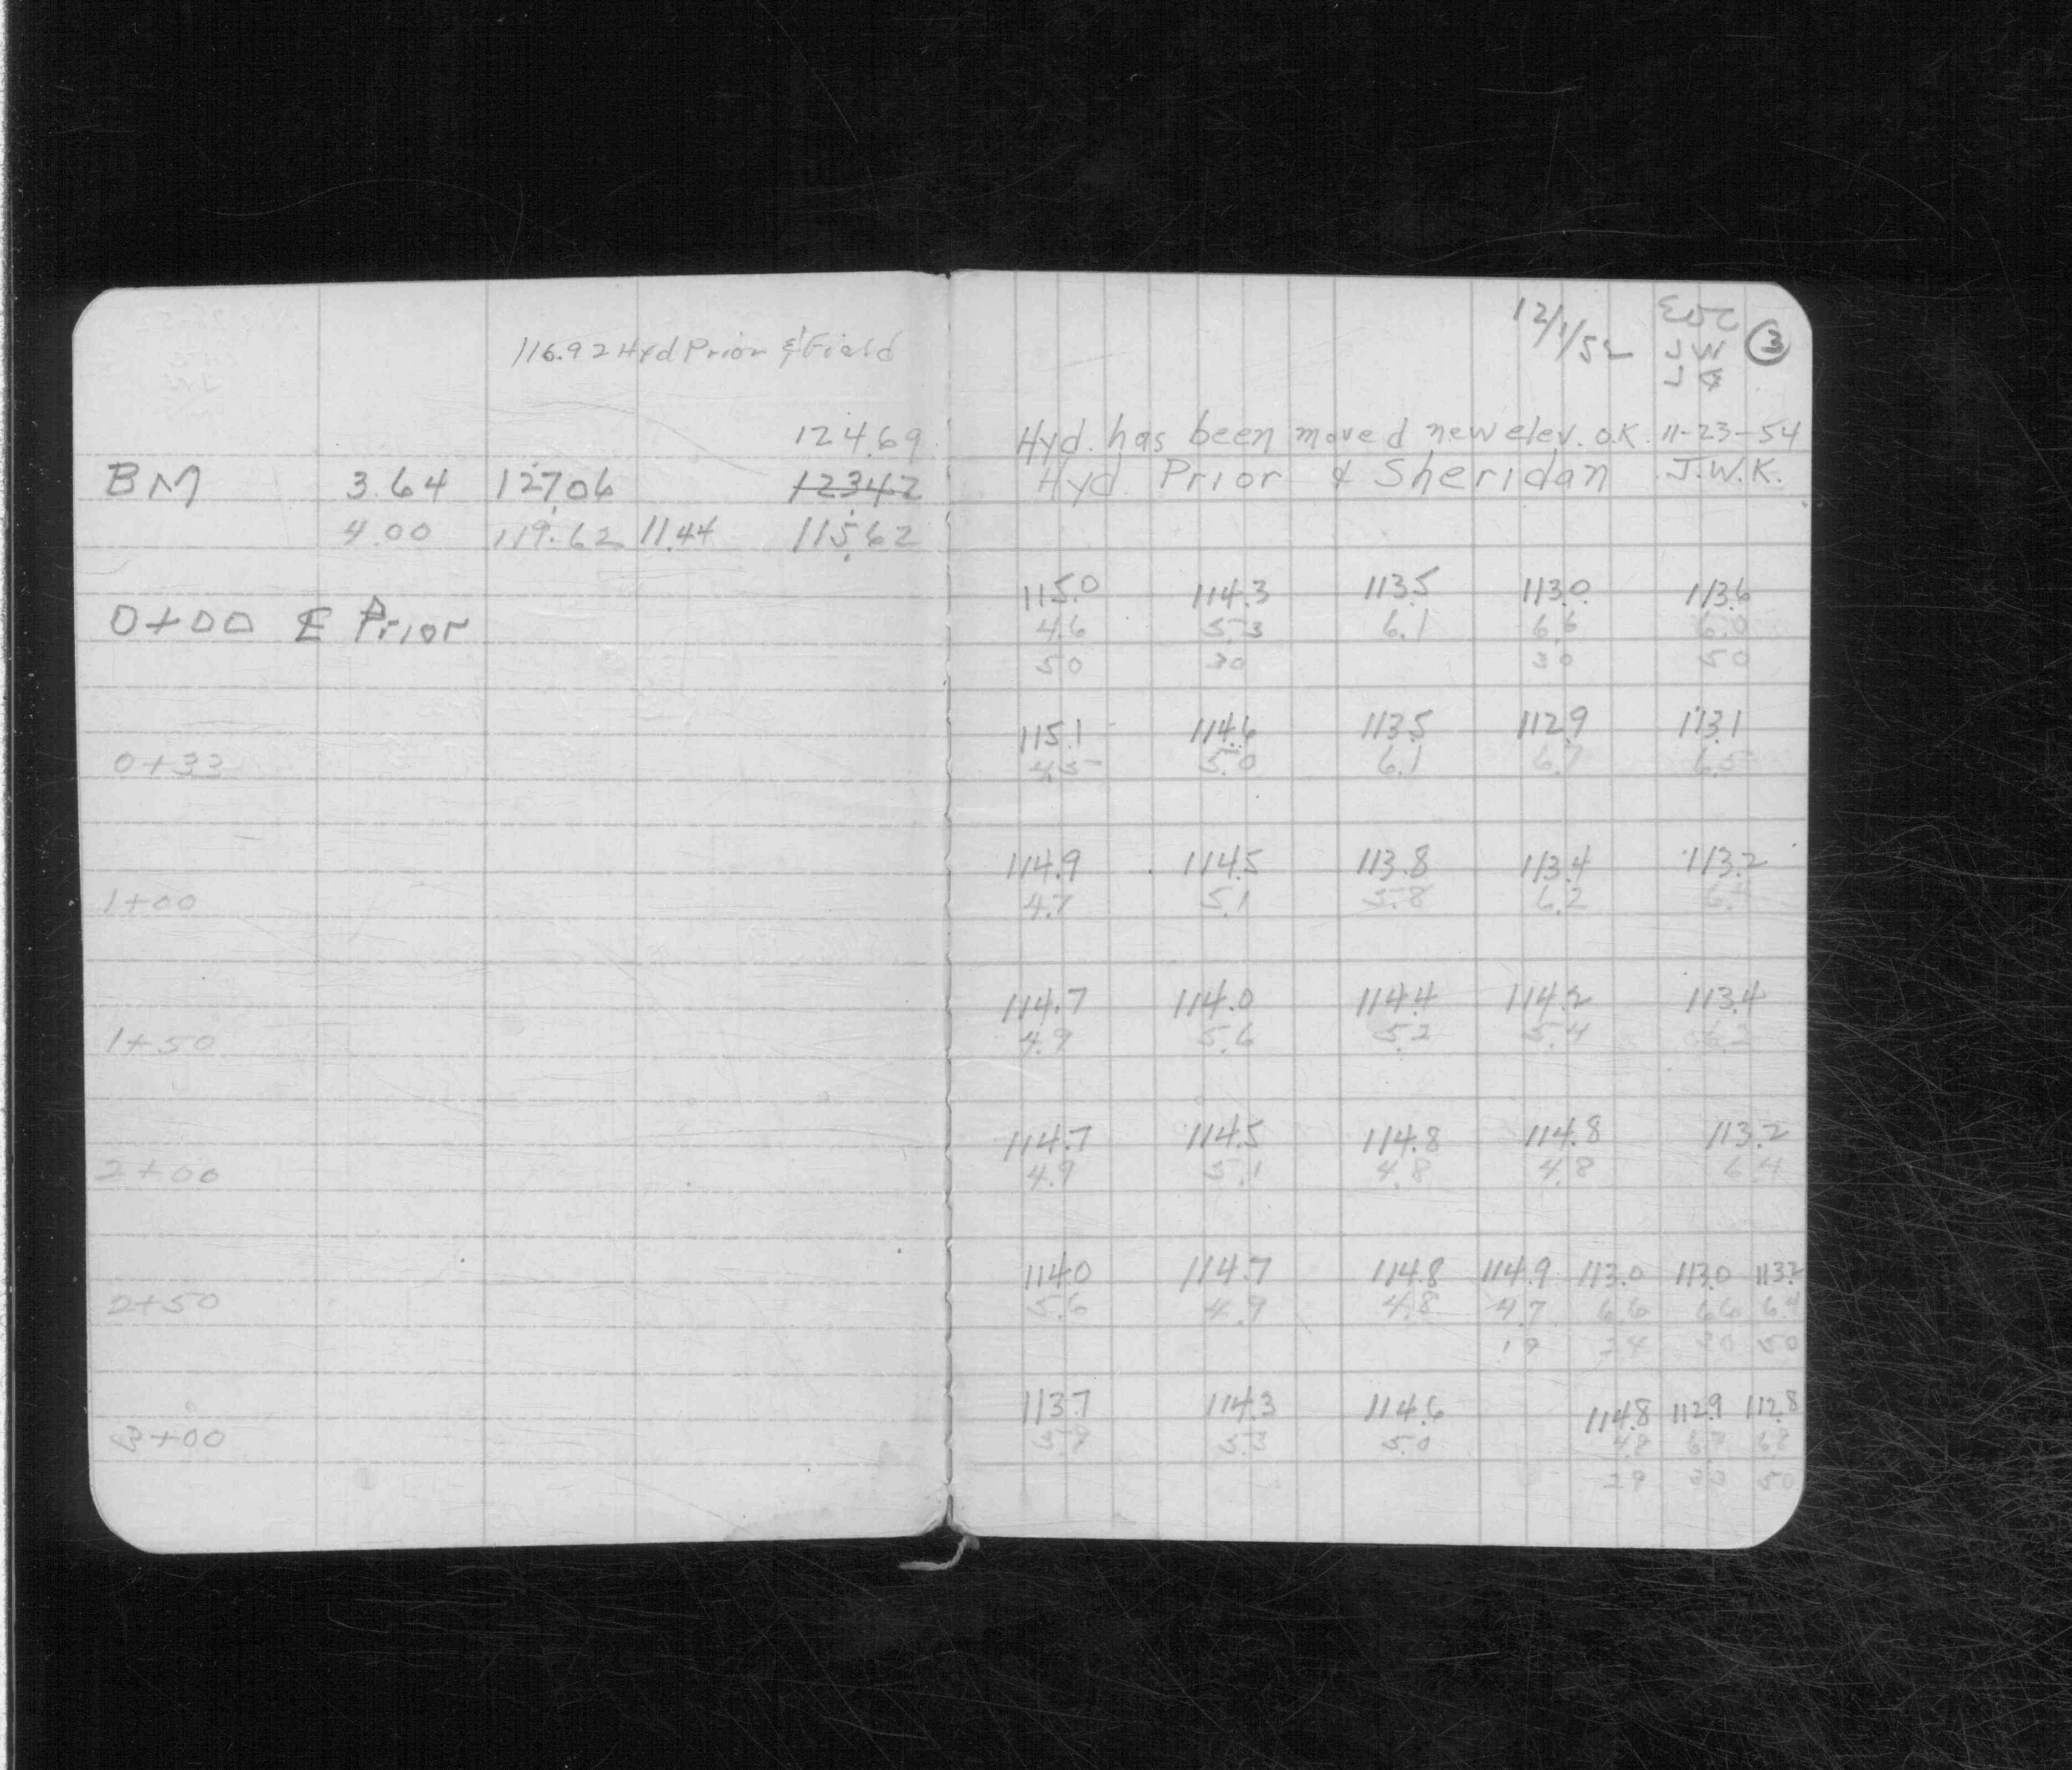 116.92 Hyd Prior & Field
124.69
BM 3.64 127.06 123.42
4.00 119.62 11.44 115.62
0+00 E Prior
0+33
1+00
1+50
2+00
2+50
3+00
12/1/52 3
JW
Hyd. has been moved new elev. O.K. 11-23-54
Hyd. Prior & Sheridan J.W.K.
115.0 114.3 113.5 113.0 113.6
4.6 5.3 6.1 6.6 6.0
50 30 30 50
115.1 114.6 113.5 112.9 113.1
4.5 5.0 6.1 6.7 6.5
114.9 114.5 113.8 113.4 113.2
4.7 5.1 5.8 6.2 6.4
114.7 114.0 114.4 114.2 113.4
4.9 5.6 5.2 5.4 6.2
114.7 114.5 114.8 114.8 113.2
4.9 5.1 4.8 4.8 6.4
114.0 114.7 114.8 114.9 113.0 113.0 113.2
5.6 4.9 4.8 4.7 6.6 6.6 6.4
19 24 30 50
113.7 114.3 114.6 114.8 112.9 112.8
5.9 5.3 5.0 4.8 6.7 6.8
29 30 50